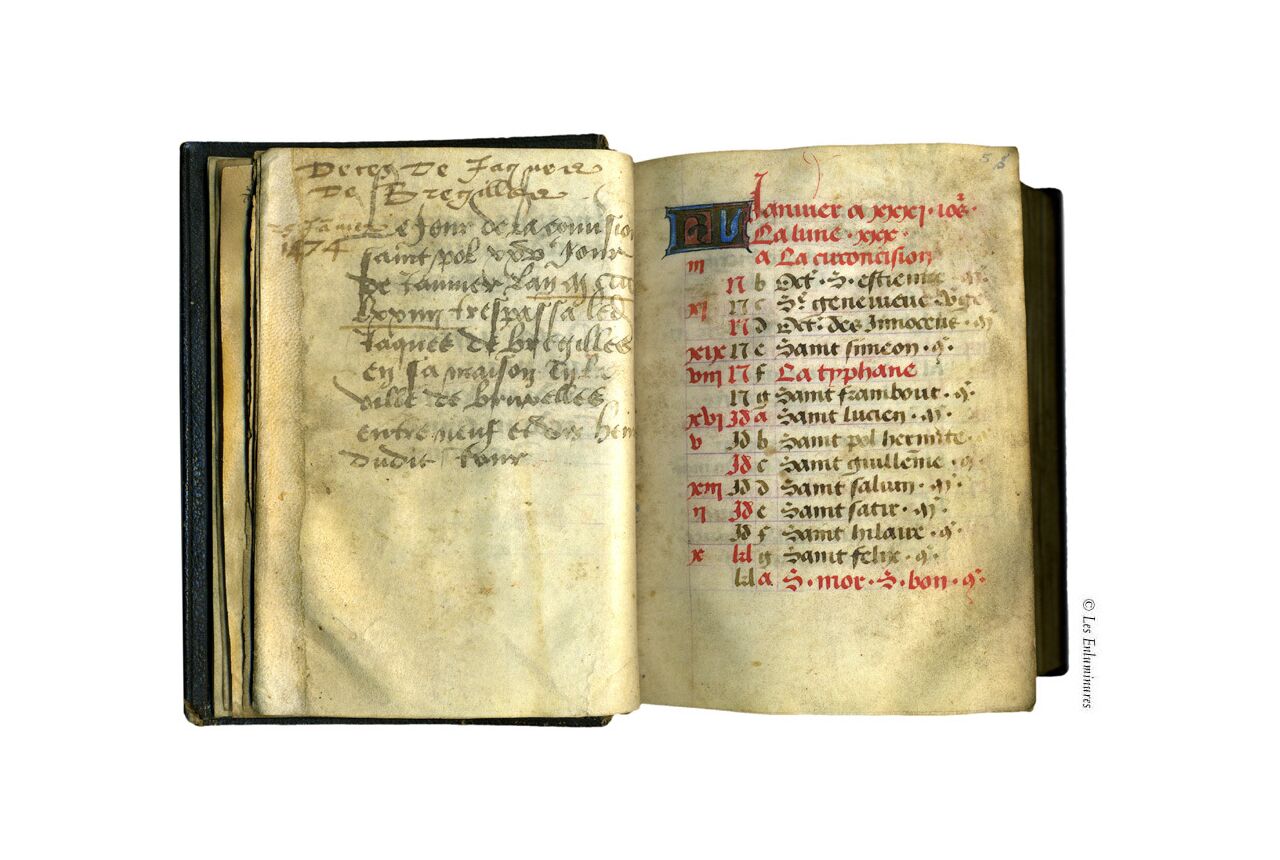 Deces De Jaques
De Bregilles
25 Janvier Le Jour de la conversion
1474 saint pol xxv Jour
de Janvier Lan m cccc
lxxiiii trespassa led
Jaques de Bregilles
en sa maison
ville de bruxelles
entre neuf et dix heu
dudit Jour
58
KL Januier a xxxi · iors ·
La lune · xxx ·
iii a La circoncision
N b Oct · S · estienne · m ·
xi N c Ste geneuieue vge
N d Oct · des Innocens · m
xix N e Saint simeon · m ·
viii N f La typhane
N g Saint frambout · m ·
xvi Id a Saint lucien · m ·
v Id b Saint pol hermite ·
Id c Saint guilleme · m ·
xiii Id d Saint saluin · m ·
ii Id e Saint satir · m ·
Id f Saint hilaire · m ·
x kl g Saint felix · m ·
kl a S · mor · S · bon · m ·
© Les Enluminures